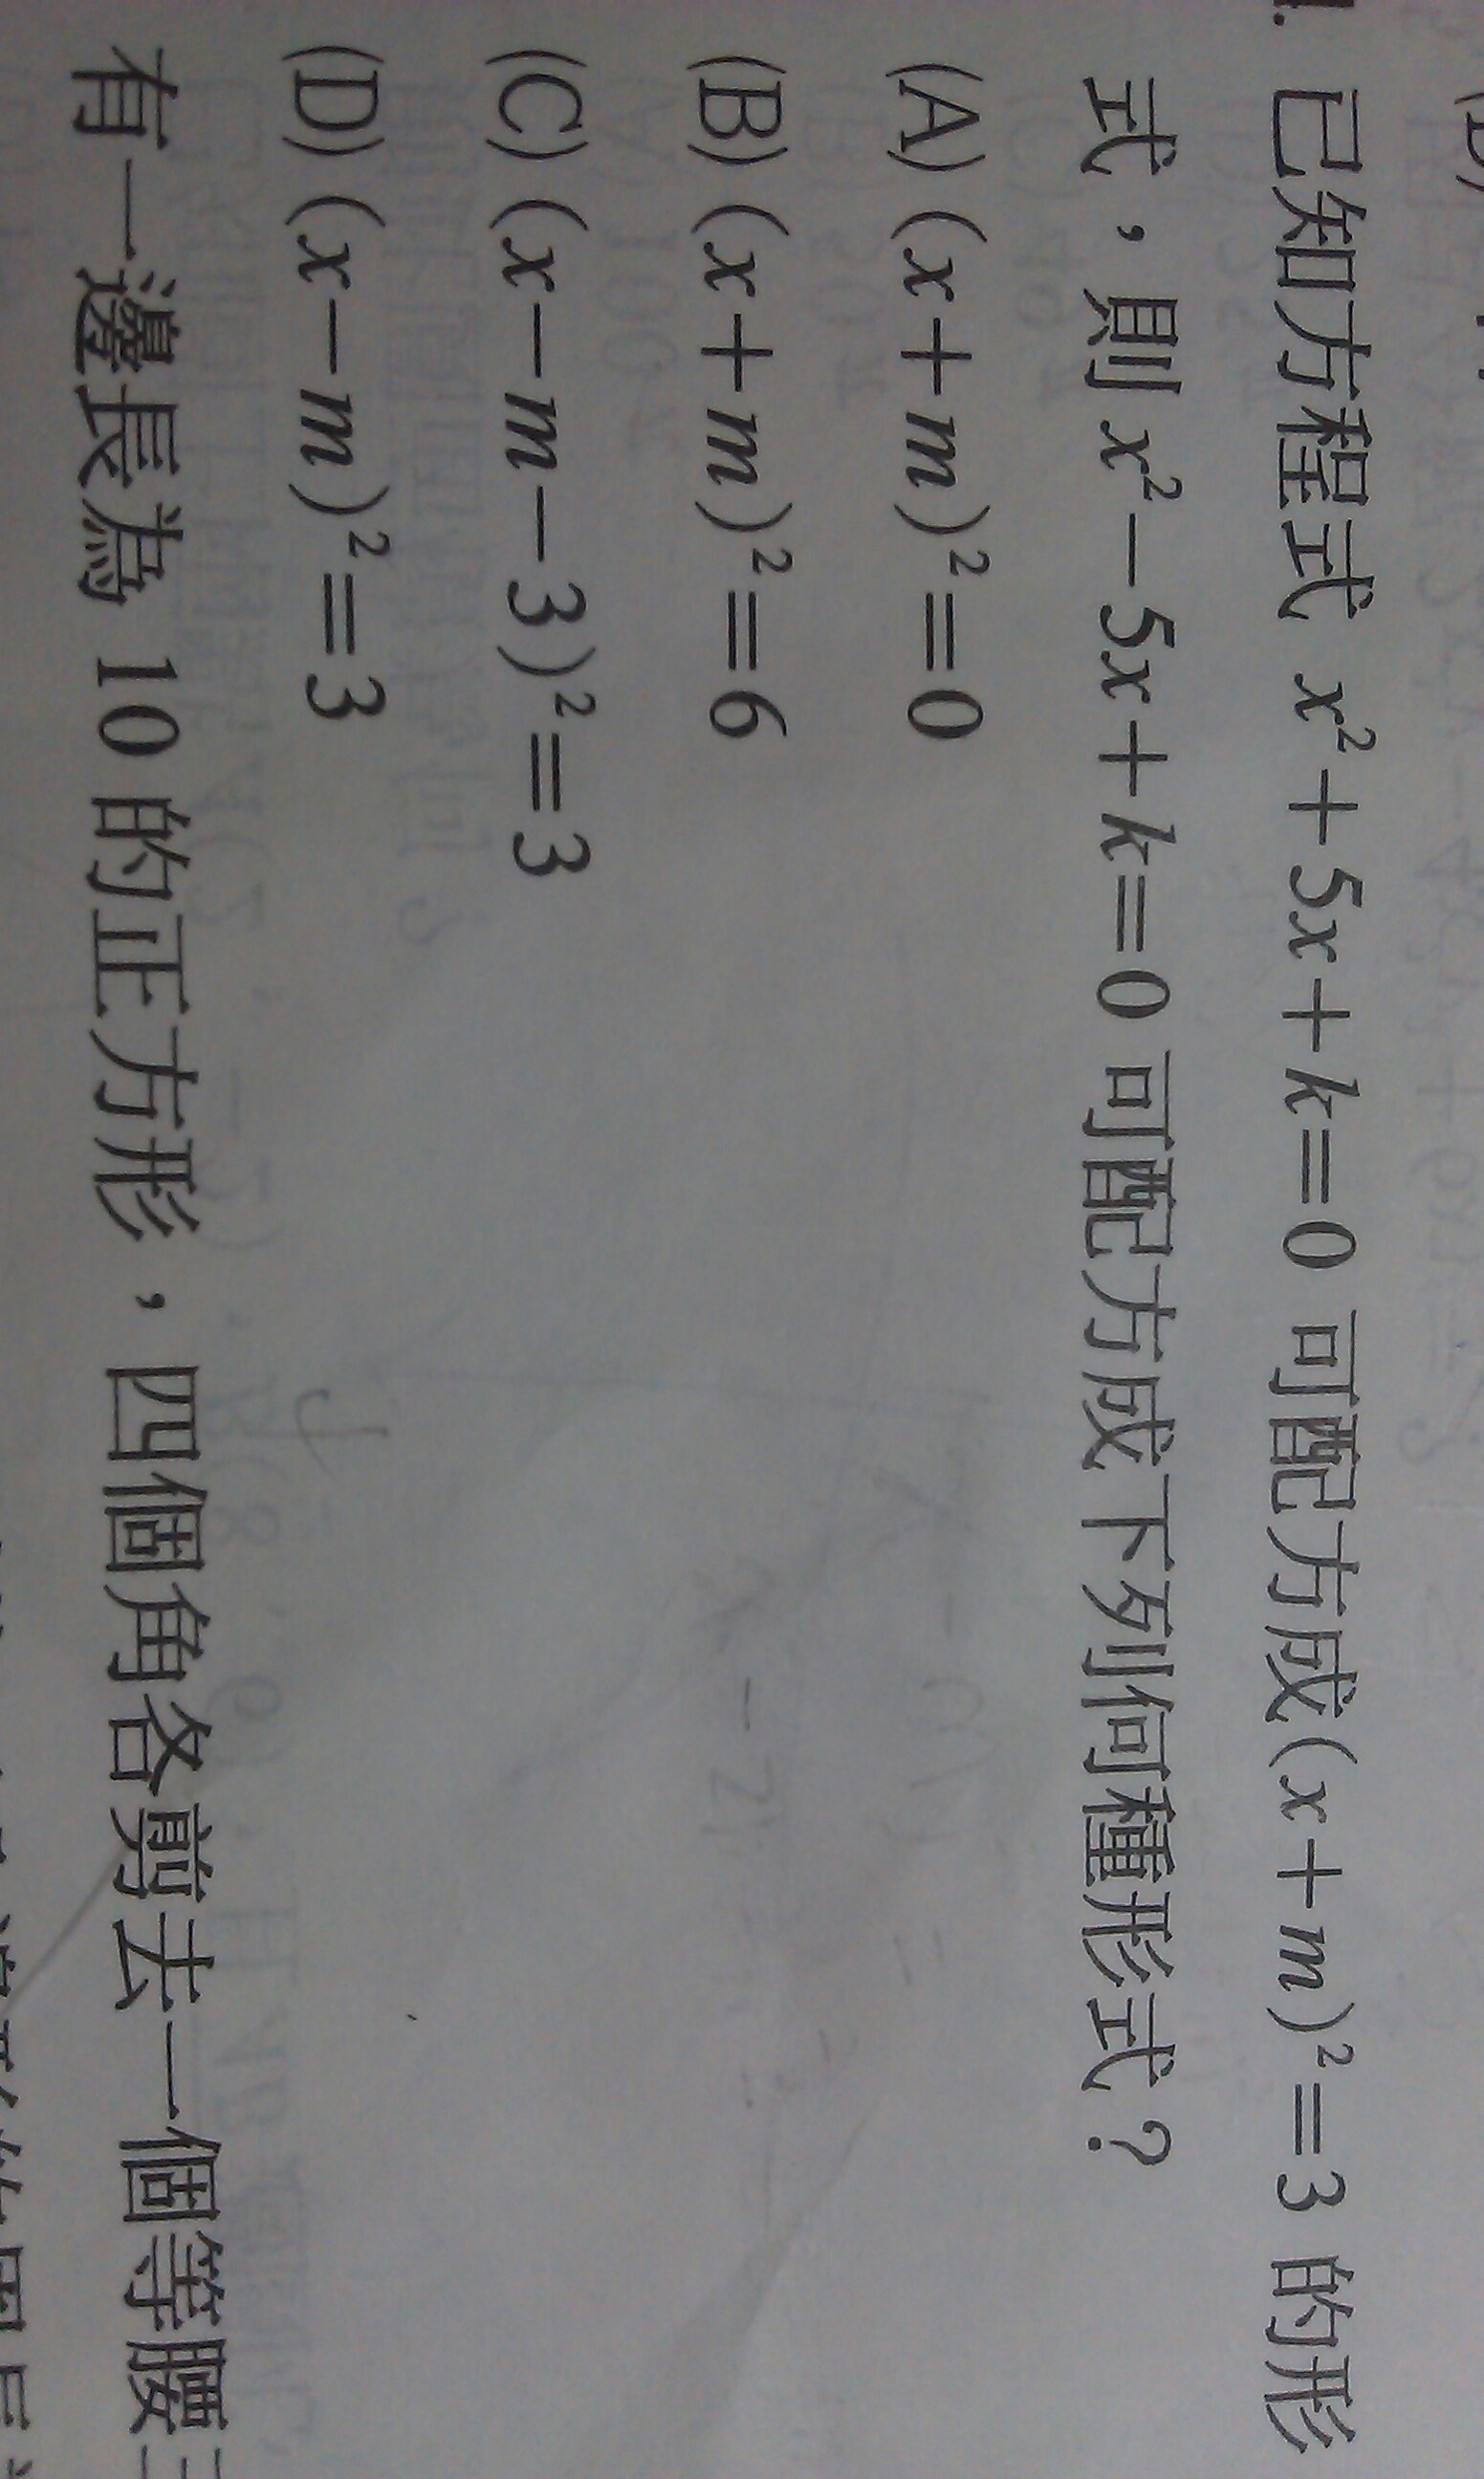 已知方程式 x²+5x+k=0 可配方成(x+m)²=3 的形
式，則 x²-5x+k=0 可配方成下列何種形式？
(A) (x+m)²=0
(B) (x+m)²=6
(C) (x-m-3)²=3
(D) (x-m)²=3
有一邊長為 10 的正方形，四個角各剪去一個等腰三